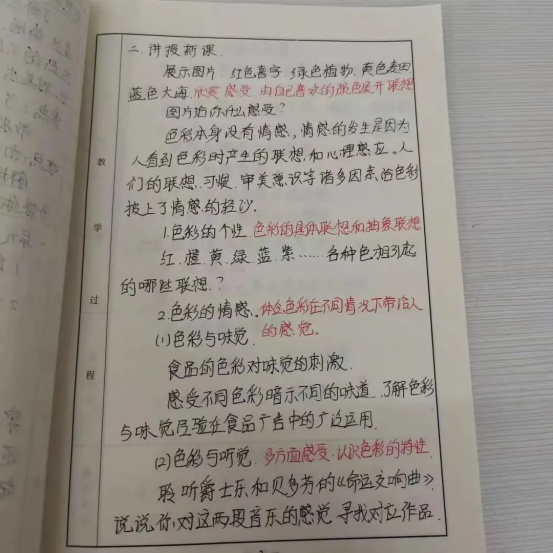 二、讲授新课.
展示图片 红色喜字 绿色植物 黄色麦田
蓝色大海 欣赏 感受 由自己喜欢的颜色展开联想
图片给你什么感受?
色彩本身没有情感,情感的发生是因为
人看到色彩时产生的联想和心理感应。人
们的联想、习惯、审美意识字诸多因素,给色彩
披上了情感的轻沙.
1.色彩的个性. 色彩的具体联想和抽象联想
红、橙、黄、绿、蓝、紫……各种色相引起
的哪些联想.?
2.色彩的情感. 体会色彩在不同情况下带给人
(1)色彩与味觉. 的感觉。
食品的色彩对味觉的刺激.
感受不同色彩暗示不同的味道. 了解色彩
与味觉经验在食品广告中的广泛运用.
(2)色彩与听觉. 多方面感受、认识色彩的特性.
聆听爵士乐和贝多芬的《命运交响曲》
说说你对这两段音乐的感觉 寻找对应作品.
教
学
过
程